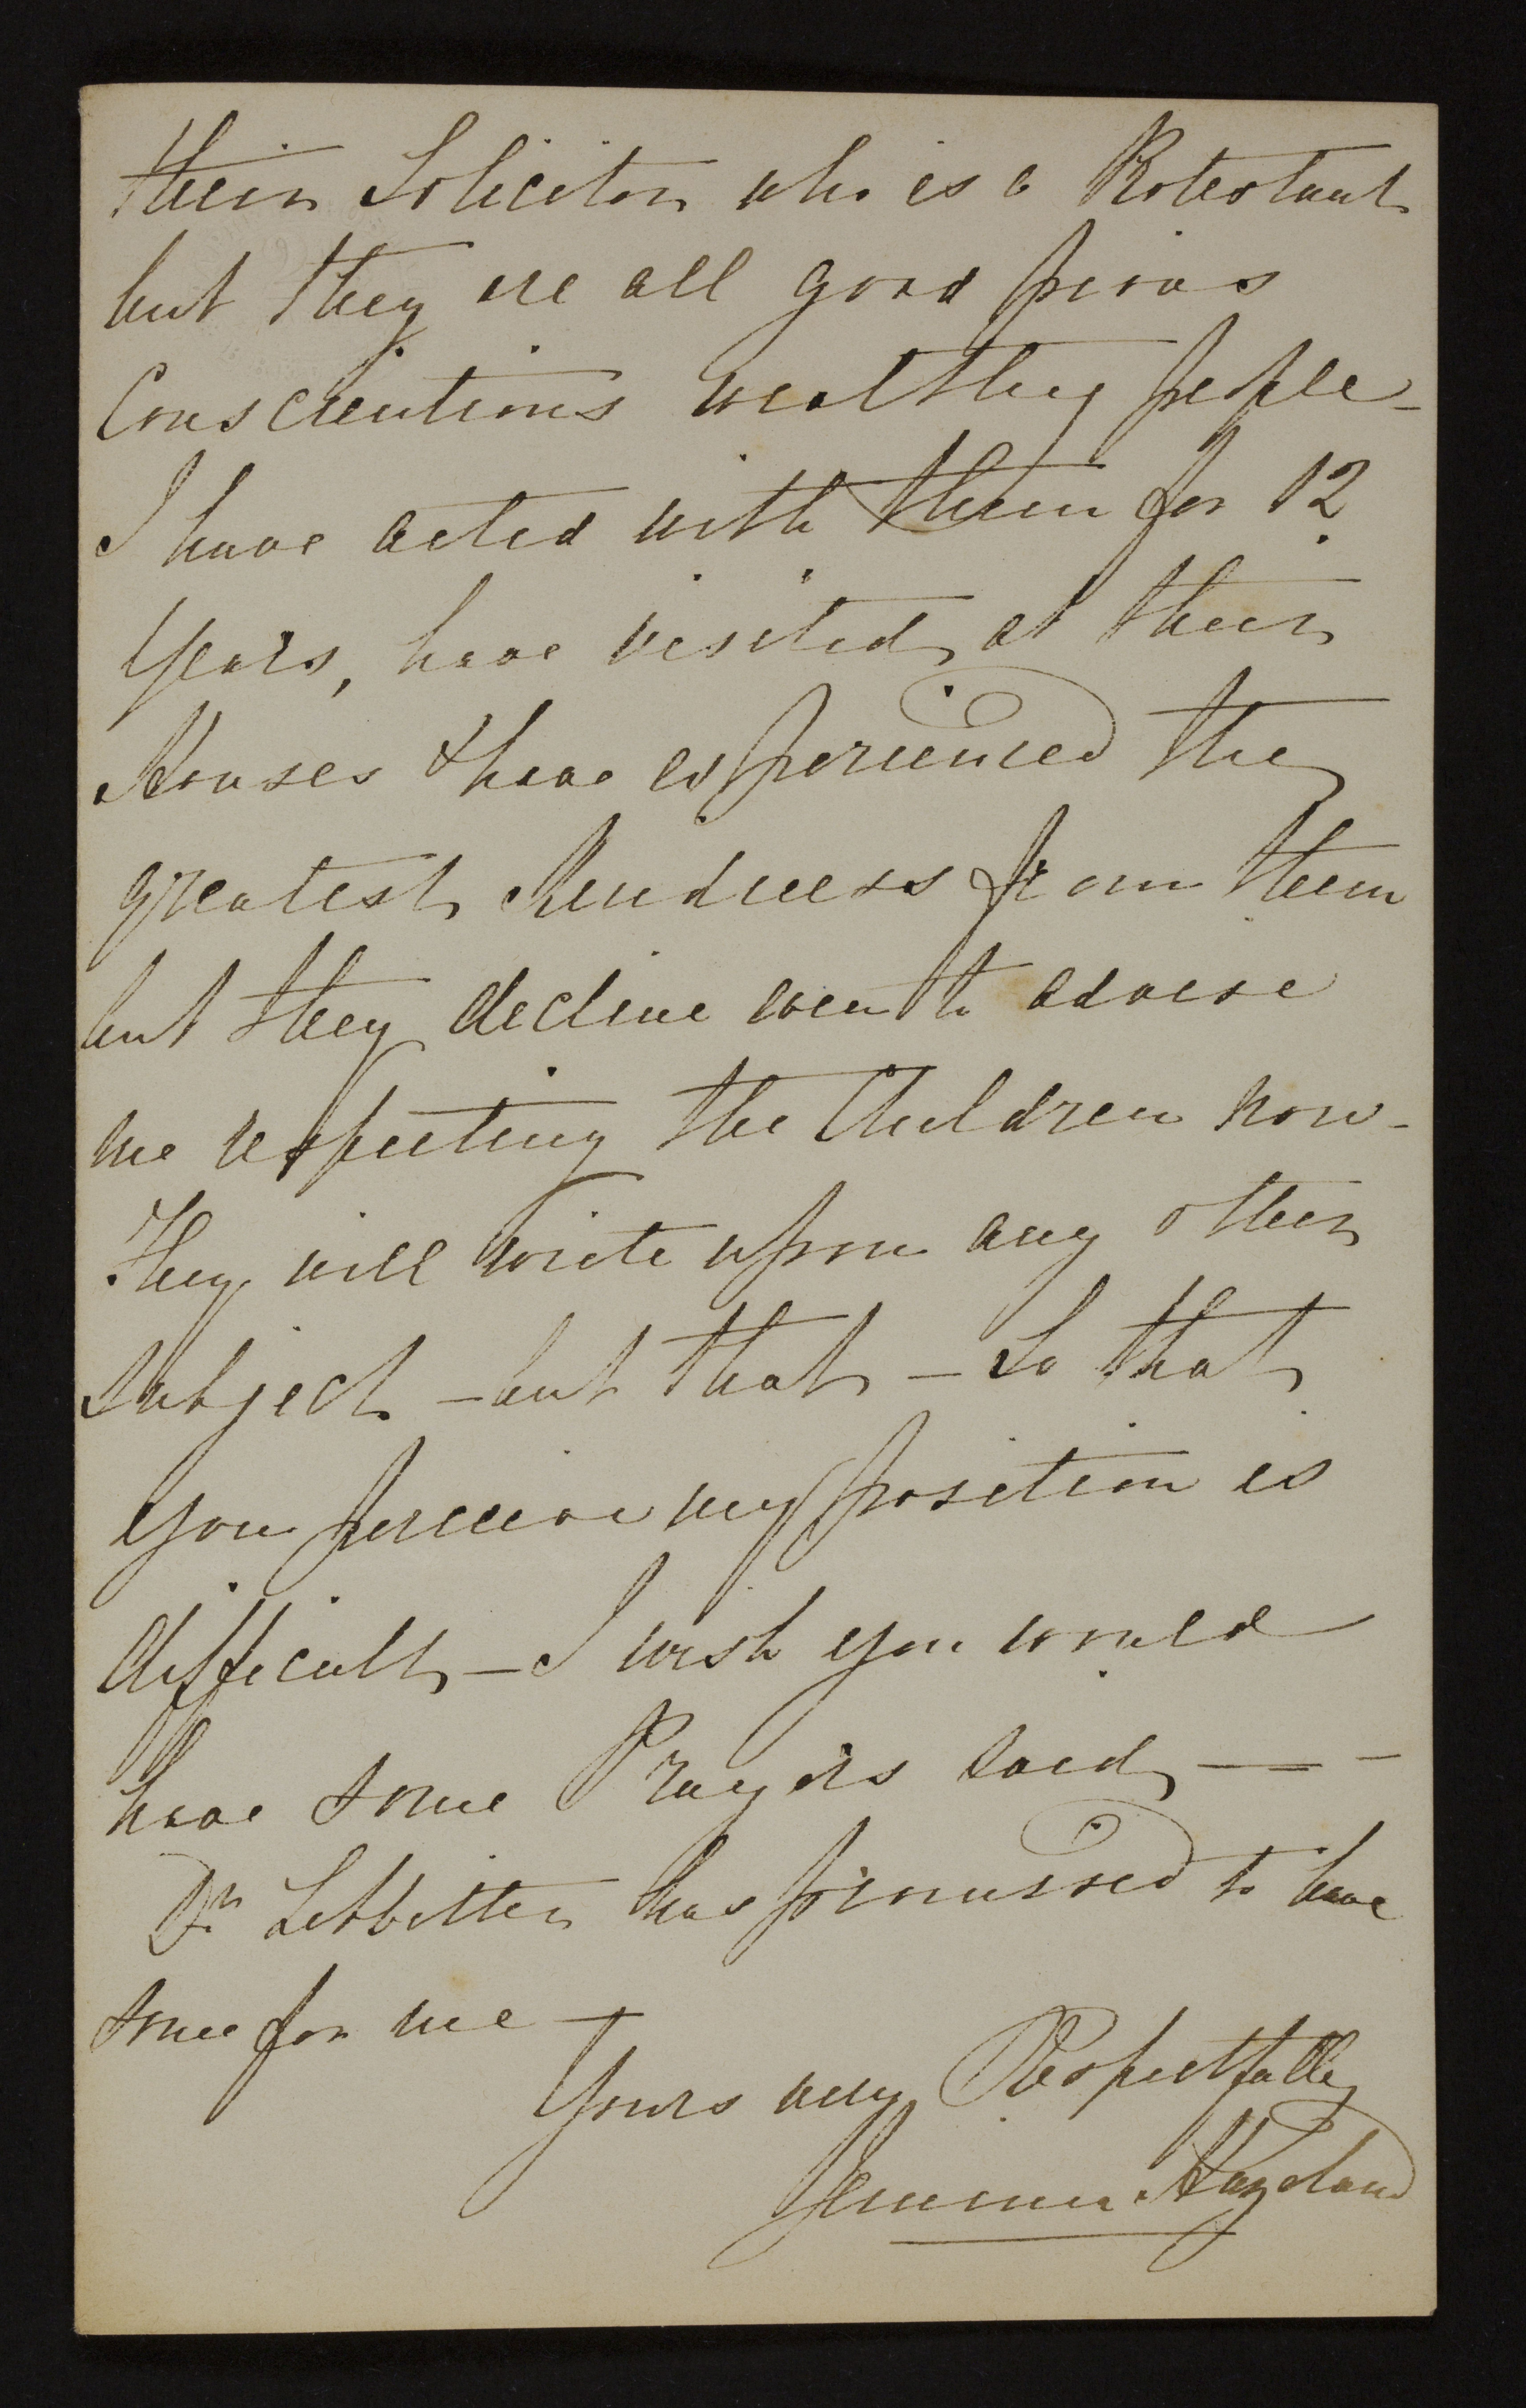 their Solicitor who is a Protestant
but they are all good pious
Conscientious wealthy people -
I have acted with them for 12
Years, have visited at their
Houses & have experienced the
greatest Kindness from them
but they decline even to advise
me respecting the Children now -
They will write upon any other
subject - but that - So that
You perceive my position is
difficult - I wish you would
have some Prayers said - -
Dr has promised to have
some for me -
Yours very Respectfully
Jemima